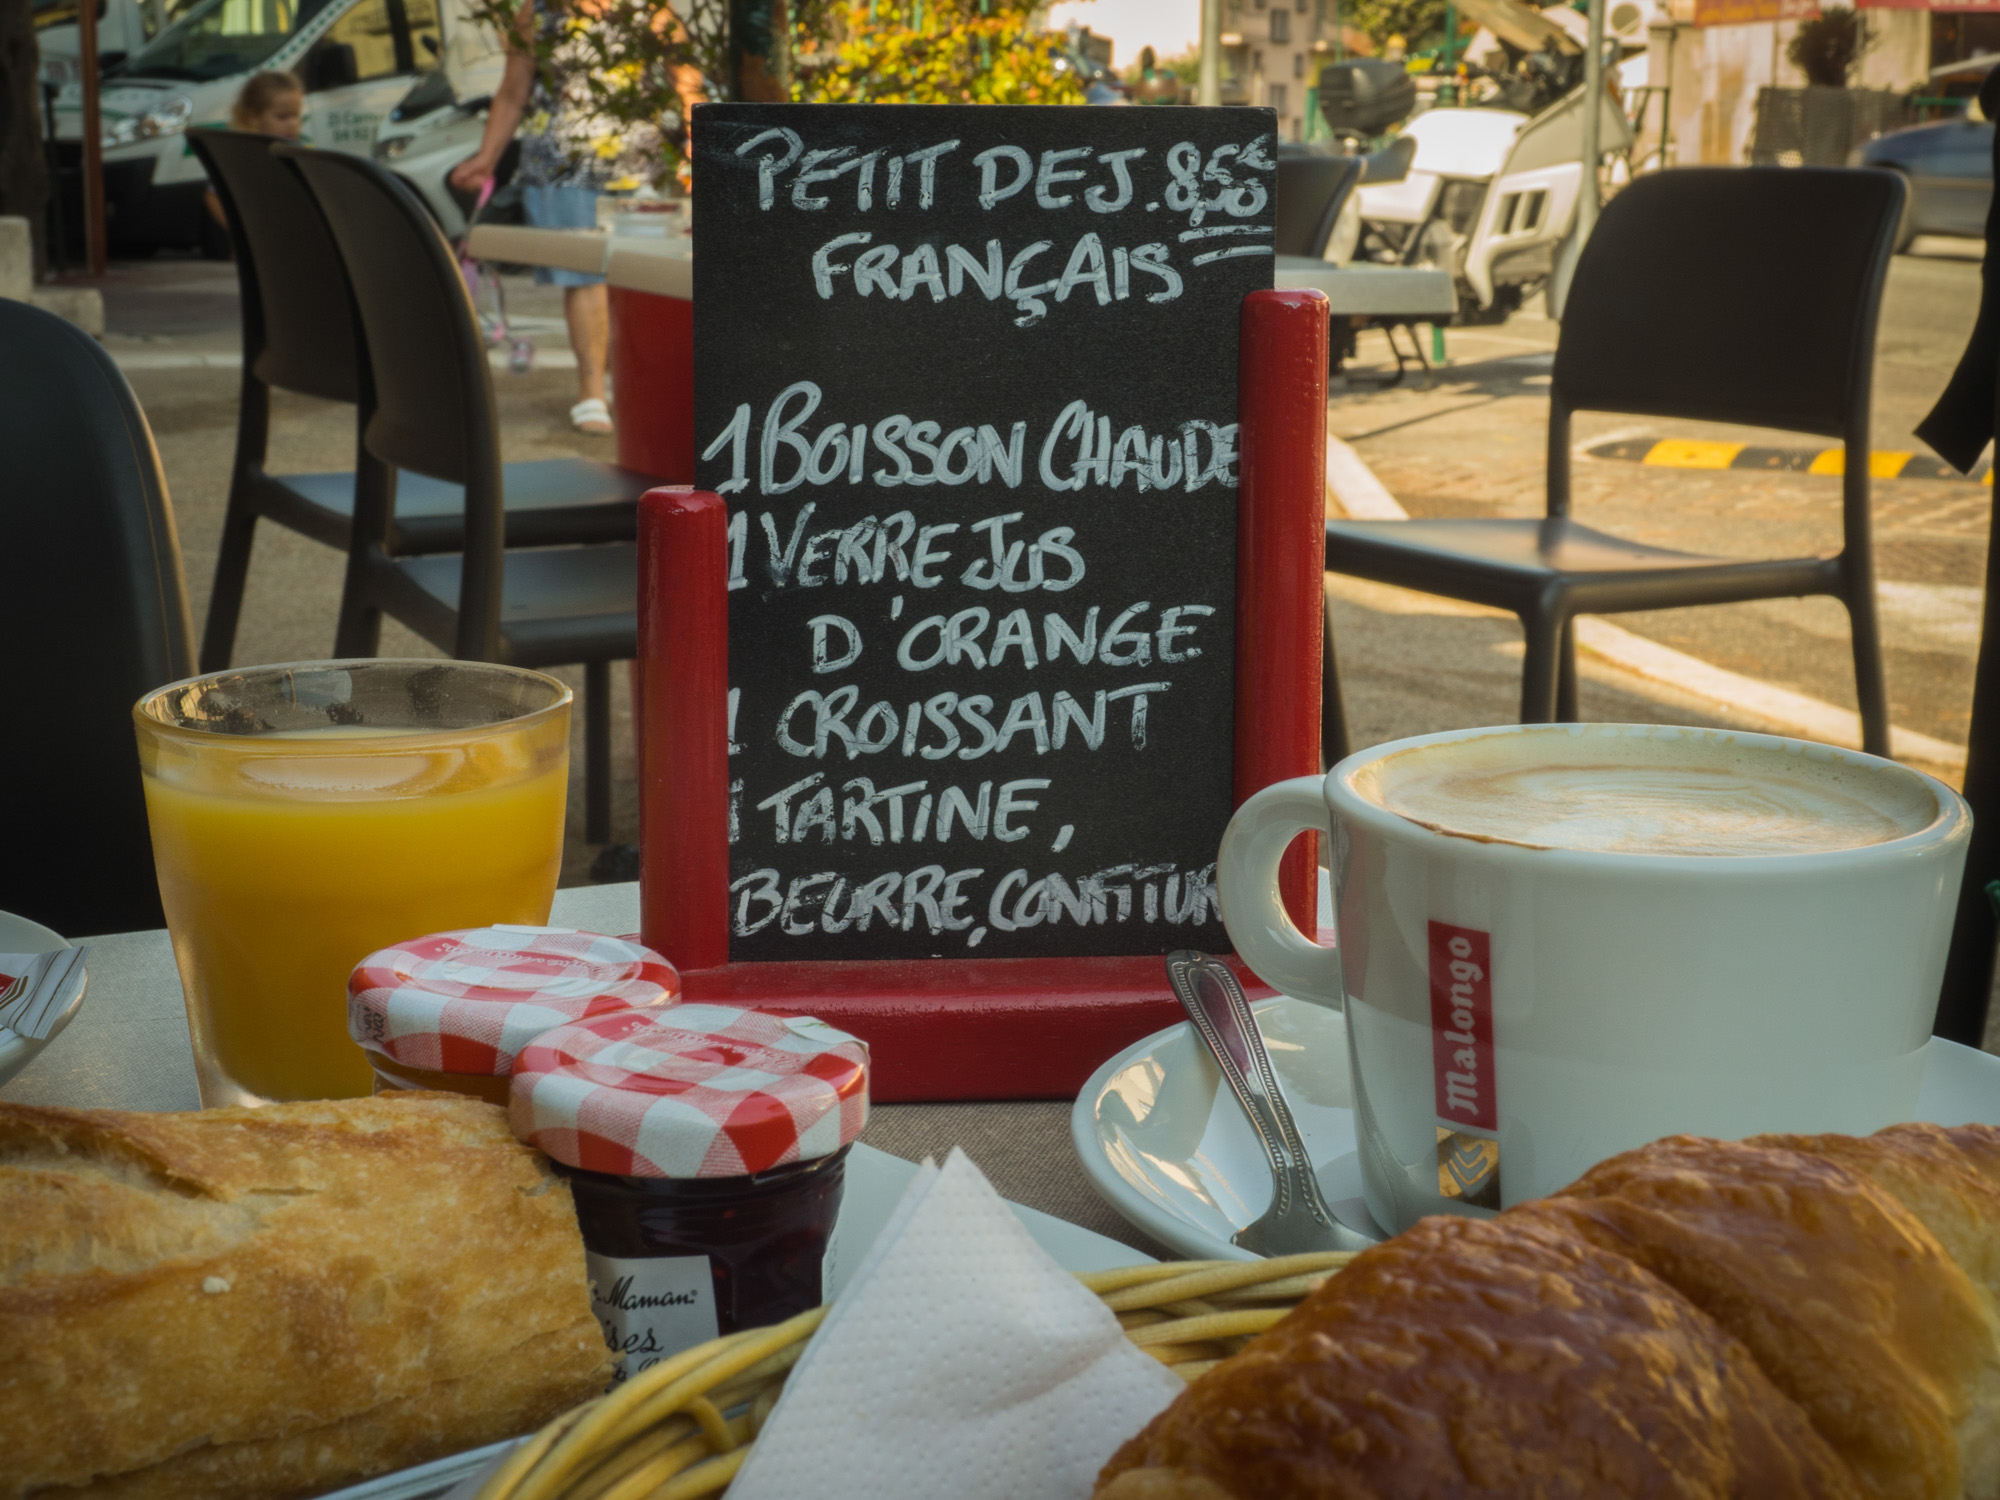 PETIT DEJ. 8,50€
FRANÇAIS
1 BOISSON CHAUDE
1 VERRE JUS
D'ORANGE
1 CROISSANT
1 TARTINE,
BEURRE, CONFITUR
Malongo
Maman